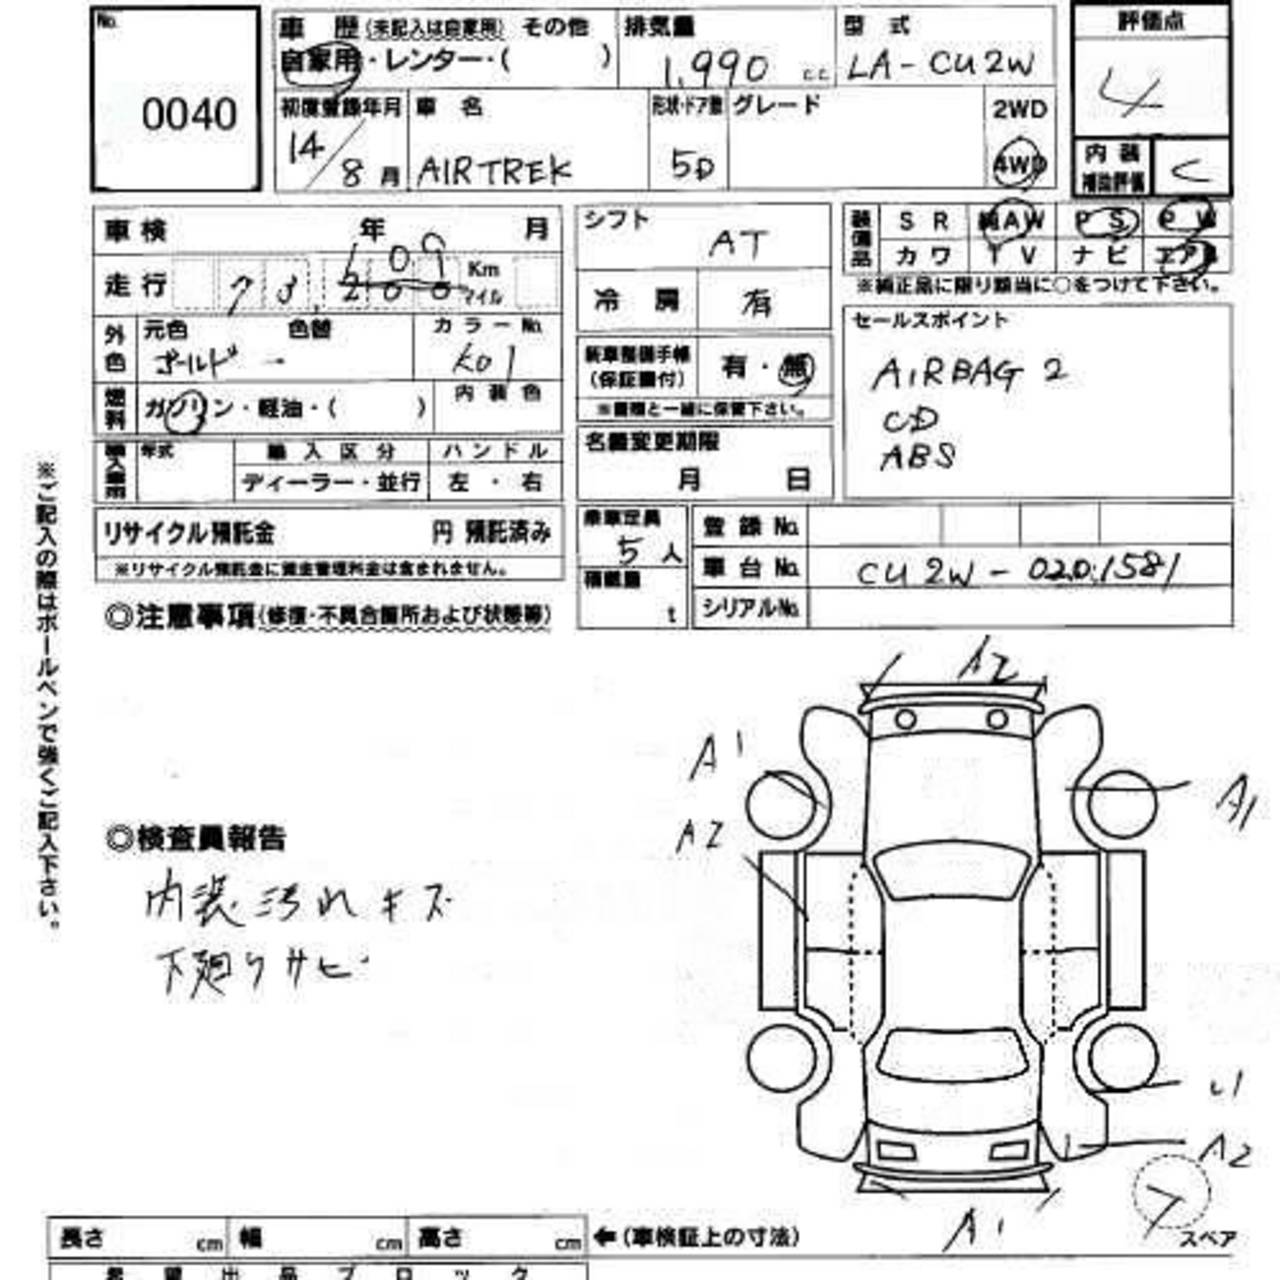 No.
0040
車歴(未記入は自家用) その他
自家用・レンター・( )
排気量
1,990 cc
型式
LA-CU2W
評価点
4
初度登録年月
14/8月
車名
AIRTREK
形状・ドア数
5D
グレード
2WD
4WD
内装
補助評価
C
車検 年 月
走行 73,200 Km
109
マイル
シフト
AT
冷房
有
装備品
SR 純AW PS PW
カワ TV ナビ エアB
※純正品に限り該当に○をつけて下さい。
外色
元色 色替
ゴールド -
カラーNo.
K01
燃料
ガソリン・軽油・( )
内装色
新車整備手帳
(保証書付)
有・無
※書類と一緒に保管下さい。
セールスポイント
AIRBAG 2
CD
ABS
輸入車用
年式
輸入区分
ディーラー・並行
ハンドル
左・右
名義変更期限
月 日
リサイクル預託金 円 預託済み
※リサイクル預託金に資金管理料金は含まれません。
乗車定員
5人
積載量
t
登録No.
車台No.
CU2W-0201581
シリアルNo.
※ご記入の際はボールペンで強くご記入下さい。
◎注意事項(修復・不具合箇所および状態等)
A2
A1
A1
A2
◎検査員報告
内装汚れキズ
下廻りサビ
U1
A2
A1
スペア
長さ cm 幅 cm 高さ cm
←(車検証上の寸法)
参置出品ブロック